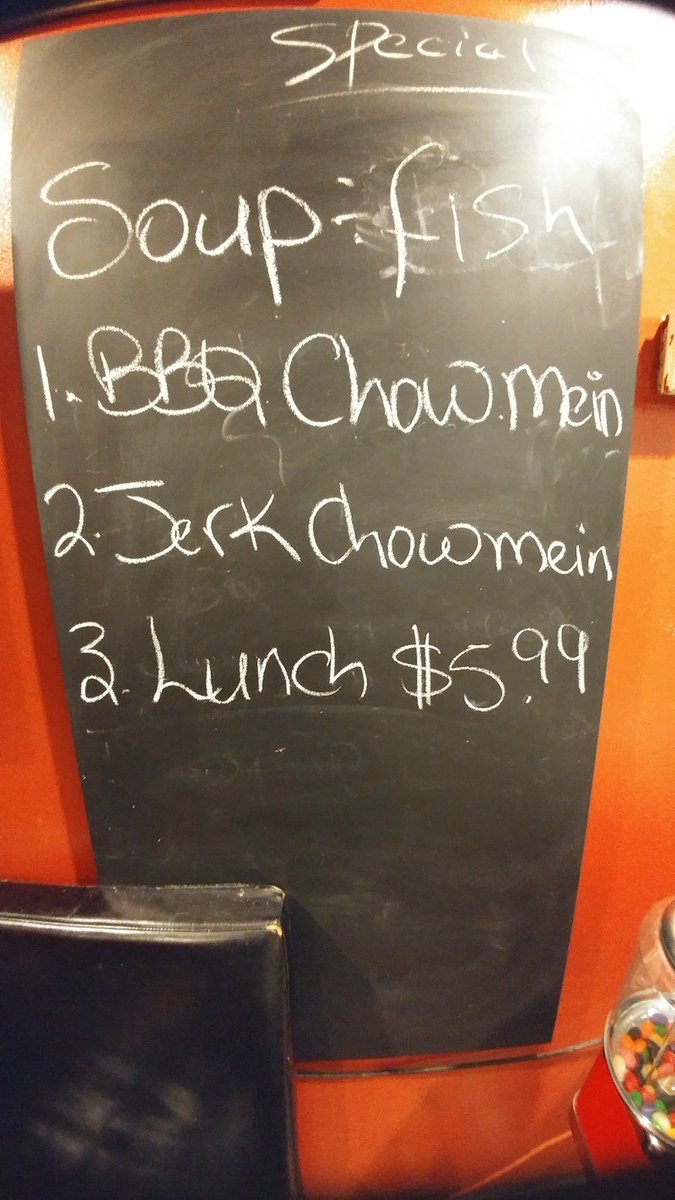 Special
Soup: fish
1. BBQ Chow.mein
2. Jerk Chowmein
3. Lunch $5.99